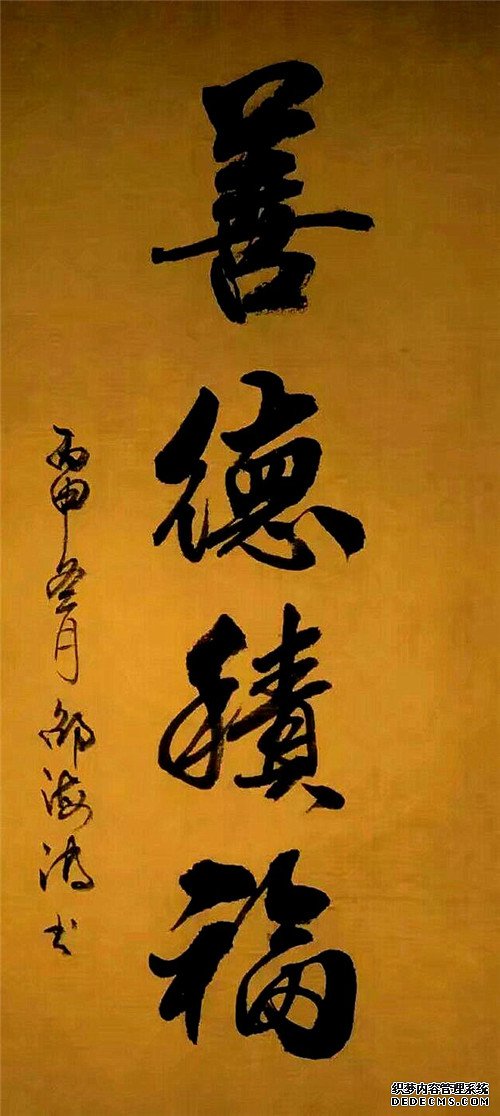 善德積福
丙申冬月邵海书
织梦内容管理系统
DEDECMS.COM